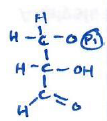 H
H-C-O-Pi
H-C-OH
C=O
H